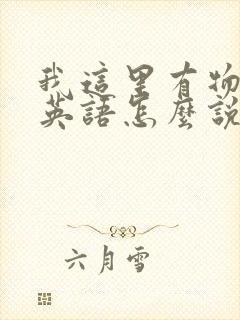 我這里有物
英語怎麼說
六月雪